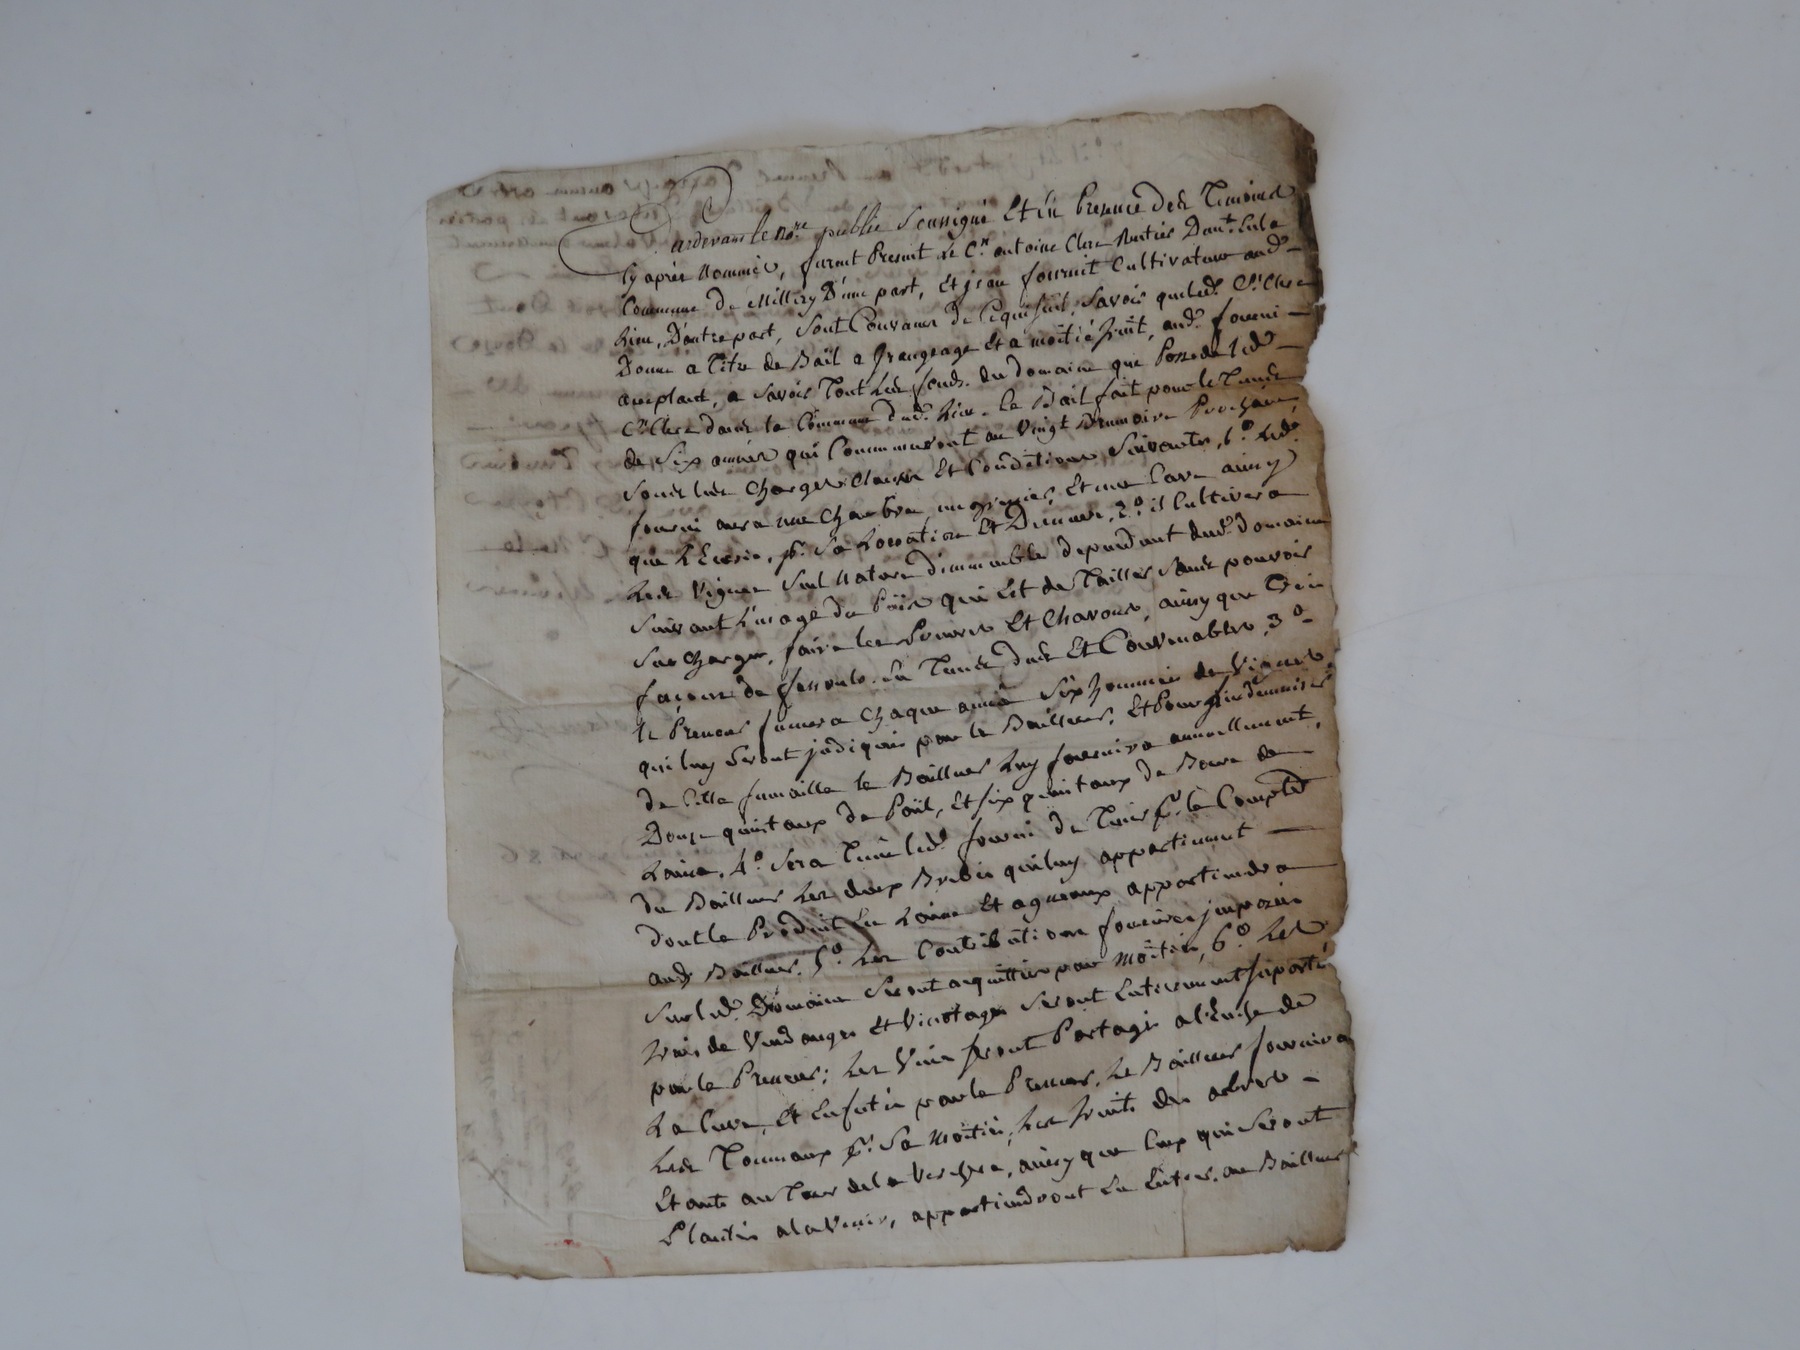 Pardevant le No.re public Soussigné Et En Presence des Temoins
Cy après Nommés, furent Present Le C.n antoine Clerc Rentier Dem.t En la
Commune De Millery D'une part, Et jean fourni Cultivateur aud.
Lieu, D'autre part, Sont Convenus De Ce qui Suit, Savoir que led. C.n Clerc
Donne a Titre de Bail a Grangeage Et a moitié fruit, aud. fourni
acceptant, a Savoir Tout Les fonds du Domaine que Possede led.
C.n Clerc dans la Commune dud. Lieu. le Bail fait pour le Temps
de Six années qui Commenceront au Vingt Brumaire Prochain,
Sous les Charges Clauses Et Conditions Suivantes, 1.º Led.
fourni aura une Chambre, un grenier, Et une Cave ainsy
que L'Ecurie, p.r Sa Location Et Demeure, 2.º il Cultivera
Les Vignes Seul Nature D'immeuble dependant dud. Domaine
Suivant L'usage du Païs qui Est de Tailler Sans pouvoir
Sur Charger, faire les Provins Et Chavons, ainsy que Trois
façons de fessouls. En Temps dus Et Convenables, 3.º
le Preneur fumera Chaque année Six hommées de Vignes
qui luy Seront jndiqués par le Bailleur, Et Pour L'indemniser
de Cette fumaille le Bailleur Luy fournira annuellement,
Douze quintaux de Paille, Et Six quintaux de Boure de
Laine. 4.º Sera Tenu led. fourni de Tenir p.r le Compte
du Bailleur Les deux Brebis qui luy appartiennent
dont le Produit En Laine Et agneaux appartiendra
aud. Bailleur. 5.º Les Contributions foncières jmposées
Sur led. Domaine Seront acquittées par Moitié, 6.º Les
frais de Vendanges Et Vinotages Seront Entierement Suportés
par le Preneur; Les Vins Seront Partagés a l'Anche de
La Cuve, Et Enfutés par le Preneur, Le Bailleur fournira
Les Tonneaux p.r Sa Moitié, Les fruits des arbres
Etants au Tour de la Verchere, ainsy que Ceux qui Seront
Plantés a la Venir, appartiendront En Entier au Bailleur